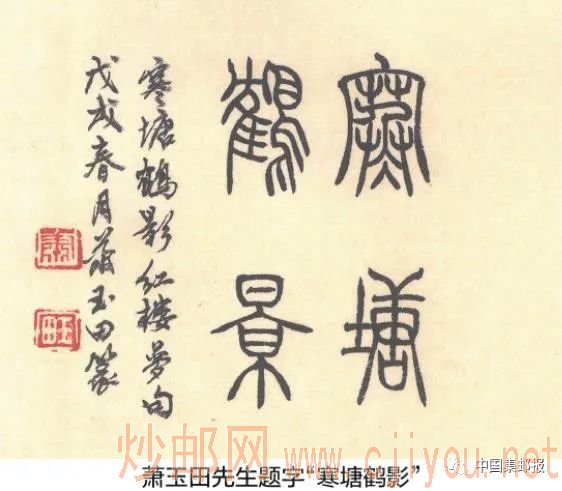 寒塘
鶴景
寒塘鶴影紅樓夢句
戊戌春月蕭玉田篆
玉田
炒邮网 www.cjiyou.net
萧玉田先生题字“寒塘鹤影”
中国集邮报